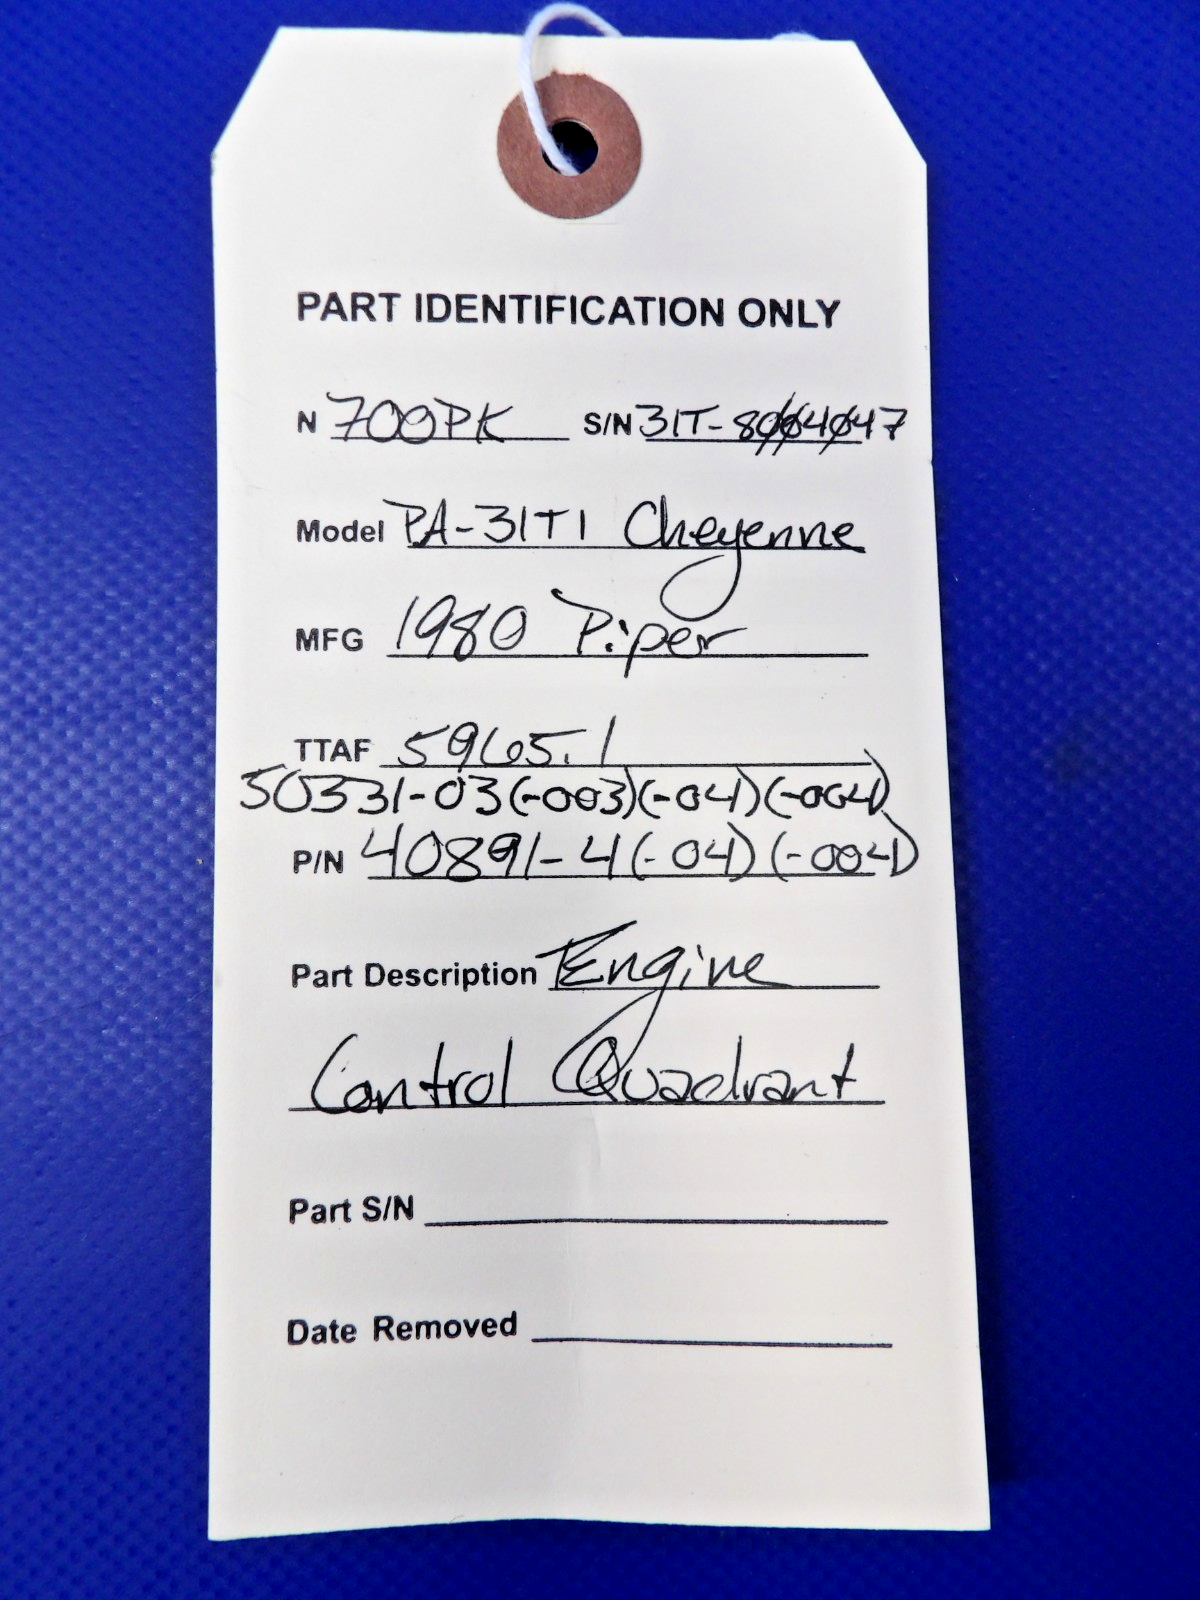 PART IDENTIFICATION ONLY
N 700PK S/N 31T-8004047
Model PA-31T1 Cheyenne
MFG 1980 Piper
TTAF 5965.1
50331-03(-003)(-04)(-004)
P/N 40891-4(-04)(-004)
Part Description Engine
Control Quadrant
Part S/N
Date Removed